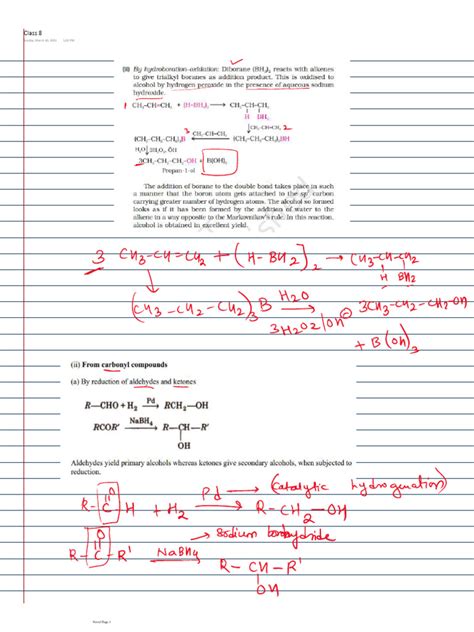 Class 8
(ii) By hydroboration-oxidation: Diborane (BH₃)₂ reacts with alkenes
to give trialkyl boranes as addition product. This is oxidised to
alcohol by hydrogen peroxide in the presence of aqueous sodium
hydroxide.
1 CH₃-CH=CH₂ + (H-BH₂)₂ ⟶ CH₃-CH-CH₂
H BH₂
↓CH₃-CH=CH₂ 2
(CH₃-CH₂-CH₂)₃B ⟵ CH₃-CH=CH₂ 3 (CH₃-CH₂-CH₂)₂BH
H₂O ↓ 3H₂O₂, OH
3CH₃-CH₂-CH₂-OH + B(OH)₃
Propan-1-ol
The addition of borane to the double bond takes place in such
a manner that the boron atom gets attached to the sp² carbon
carrying greater number of hydrogen atoms. The alcohol so formed
looks as if it has been formed by the addition of water to the
alkene in a way opposite to the Markovnikov's rule. In this reaction,
alcohol is obtained in excellent yield.
3 CH₃-CH-CH₂ + (H-BH₂)₂ → CH₃-CH-CH₂
H BH₂
(CH₃-CH₂-CH₂)₃B H₂O 3H₂O₂/OH⊖ → 3CH₃-CH₂-CH₂-OH
+ B(OH)₃
(ii) From carbonyl compounds
(a) By reduction of aldehydes and ketones
R—CHO + H₂ Pd⟶ RCH₂—OH
RCOR′ NaBH₄⟶ R—CH—R′
OH
Aldehydes yield primary alcohols whereas ketones give secondary alcohols, when subjected to
reduction.
R-C-H + H₂ Pd → (Catalytic hydrogenation)
O
R-CH₂-OH
→ Sodium borohydride
O
R-C-R' NaBH₄ → R-CH-R'
OH